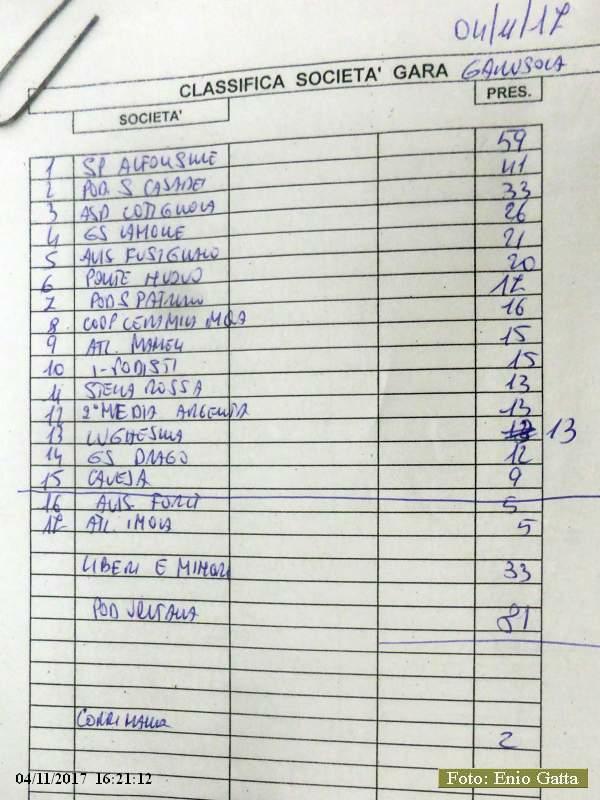 04/11/17
CLASSIFICA SOCIETA' GARA
SOCIETA' PRES.
1 SP ALFONSINE 59
2 POD. S CASADEI 41
3 ASD COTIGNOLA 33
4 GS LAMONE 26
5 AVIS FUSIGNANO 21
6 PONTE NUOVO 20
7 POD S PATRIZIO 17
8 COOP CERAMICA IMOLA 16
9 ATL. MAMELI 15
10 I-PODISTI 15
11 STELLA ROSSA 13
12 2° MEDIA ARGENTA 13
13 LUGHESINA 13
14 GS DRAGO 12
15 CAVEJA 9
16 AVIS FORLI 5
17 ATL IMOLA 5
LIBERI E MINORI 33
POD 81
2
04/11/2017 16:21:12
Foto: Enio Gatta